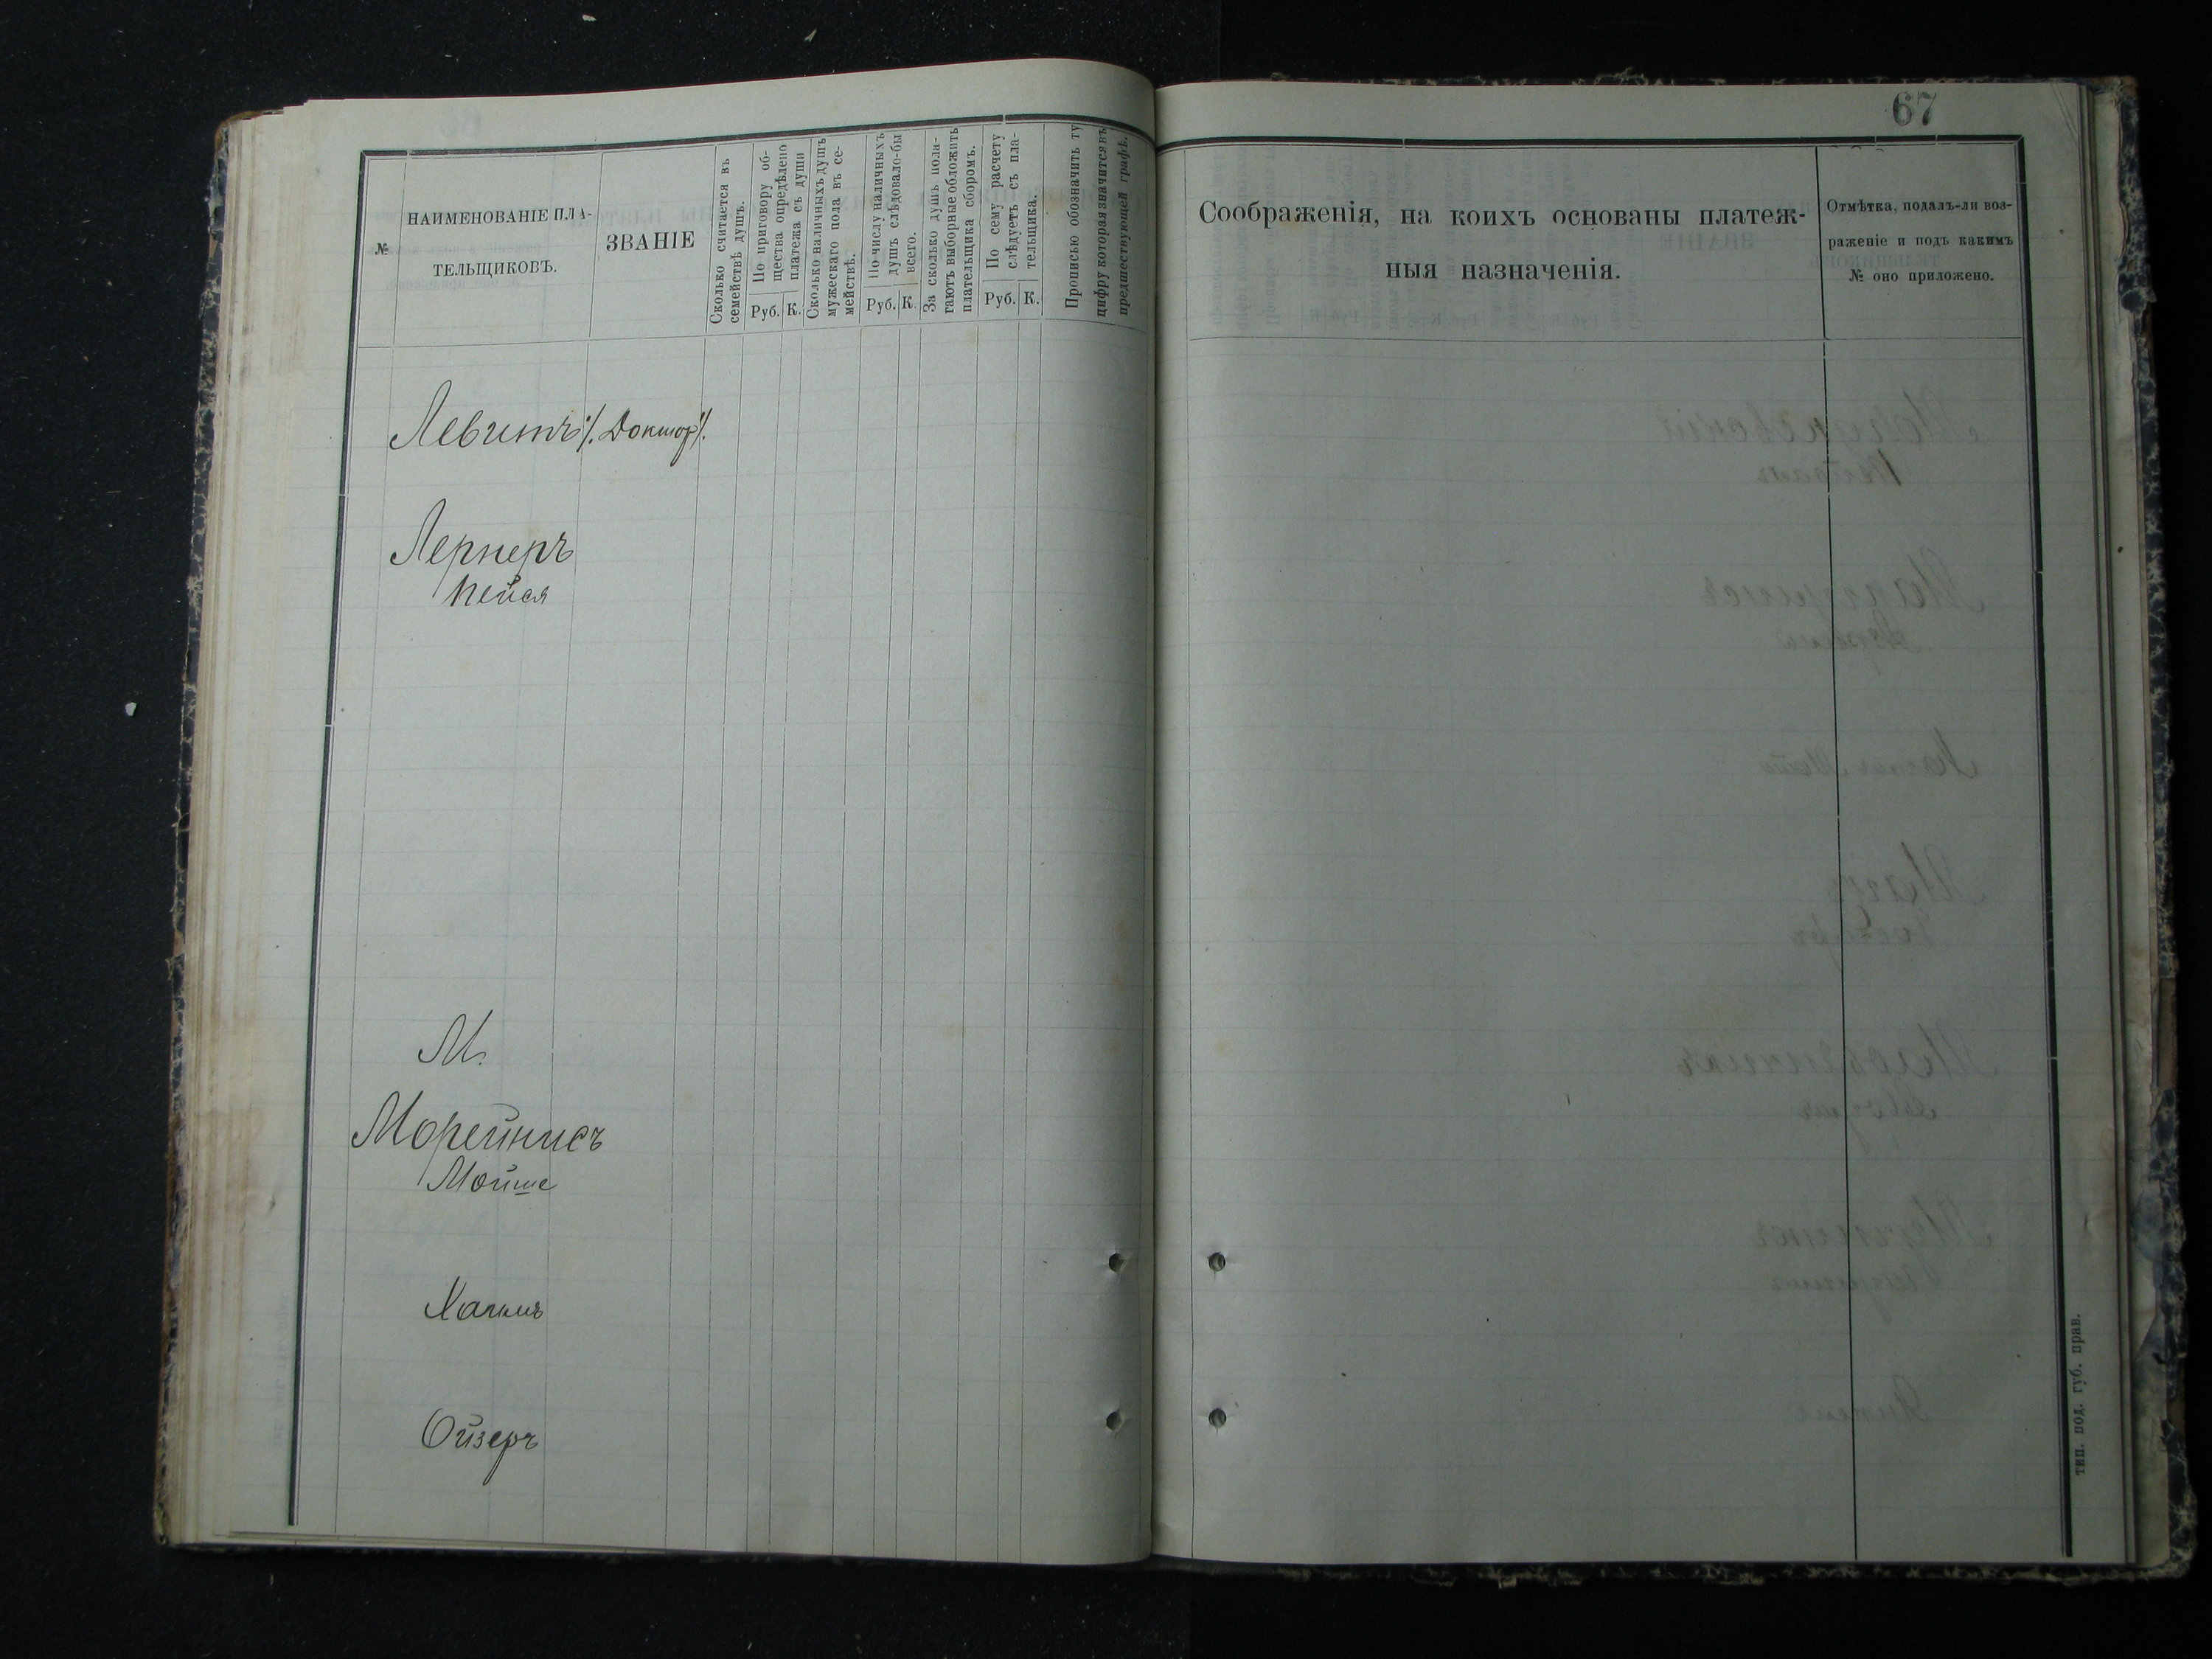 67
№
НАИМЕНОВАНІЕ ПЛА-
ТЕЛЬЩИКОВЪ.
ЗВАНІЕ
Сколько считается въ
семействѣ душъ.
По приговору об-
щества опредѣлено
платежа съ души
Руб. К.
Сколько наличныхъ душъ
мужескаго пола въ се-
мействѣ.
По числу наличныхъ
душъ слѣдовало-бы
всего.
Руб. К.
За сколько душъ пола-
гаютъ выборные обложить
плательщика сборомъ.
По сему расчету
слѣдуетъ съ пла-
тельщика.
Руб. К.
Прописью обозначить ту
цифру которая значится въ
предшествующей графѣ.
Соображенія, на коихъ основаны платеж-
ныя назначенія.
Отмѣтка, подалъ-ли воз-
раженіе и подъ какимъ
№ оно приложено.
Левитъ /. Докторъ /.
Лернеръ
Пейся
М.
Морейнисъ
Мойше
Хаимъ
Ойзеръ
тип. под. губ. прав.